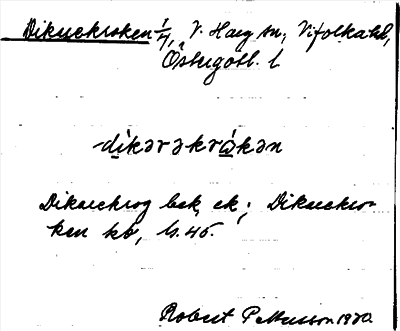 Dikarekroken 1/4, V. Harg sn, Vifolka hd,
Östergötl. l
dikərəkrɷ́kən
Dikarekrog bek, ek; Dikarekro-
ken kb, h. 45.
Robert Pettersson 1930.